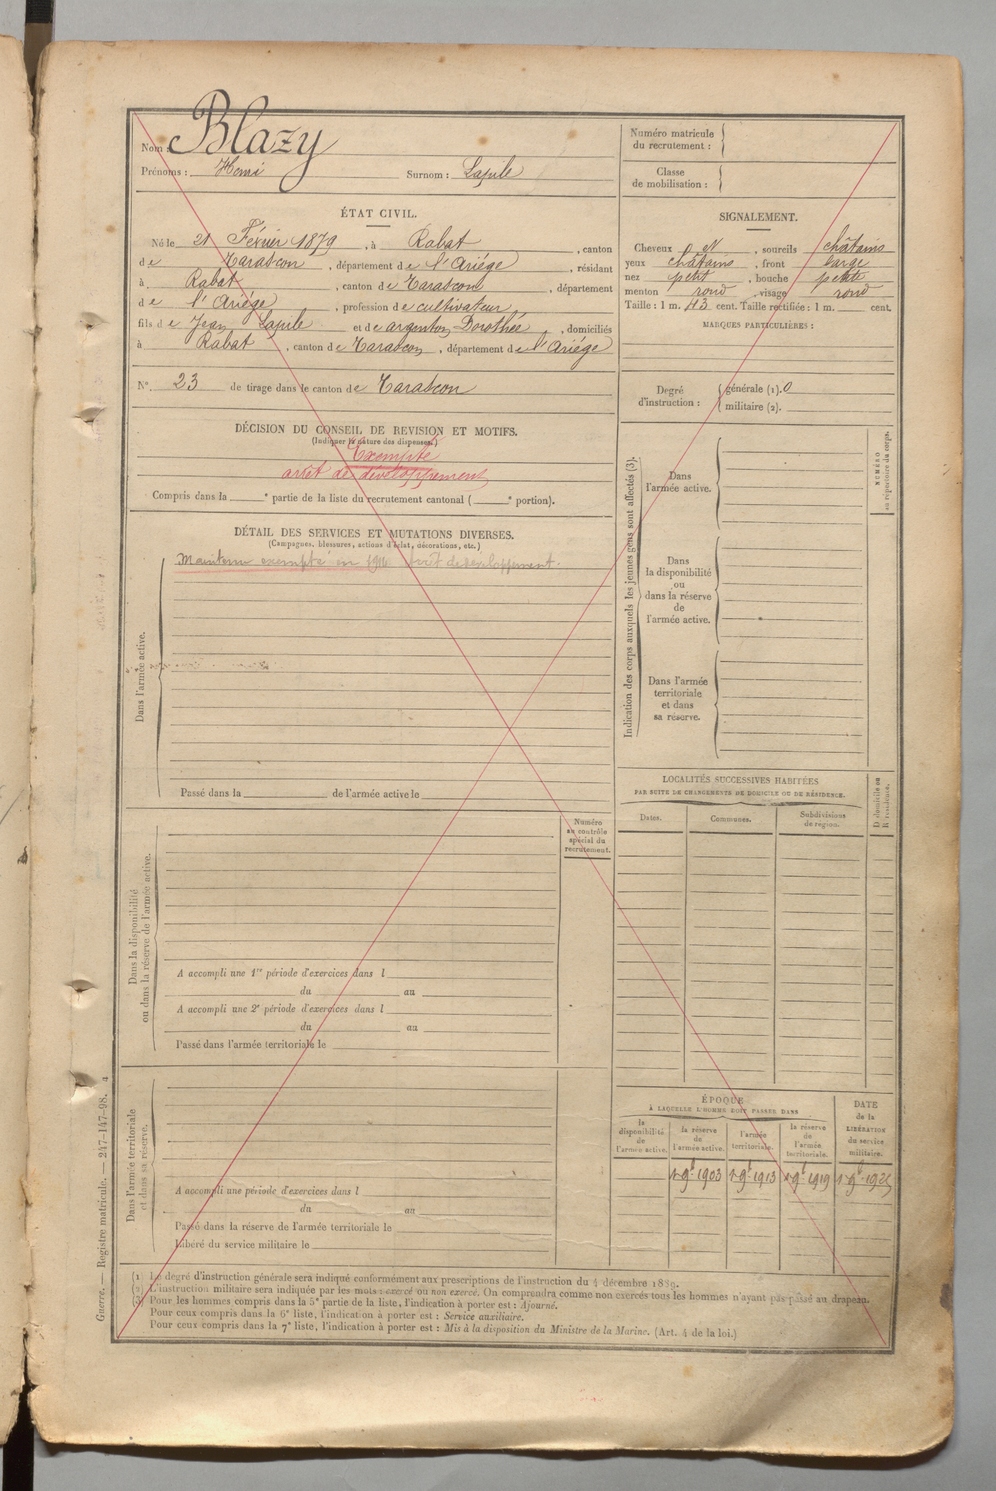 Nom : Blazy
Prénoms : Henri Surnom : Lapile
ÉTAT CIVIL.
Né le 21 Février 1879, à Rabat, canton
de Tarascon, département de l'Ariége, résidant
à Rabat, canton de Tarascon, département
de l'Ariége, profession de cultivateur,
fils de Jean Lapile et de argenton Dorothée, domiciliés
à Rabat, canton de Tarascon, département de l'Ariége
N°. 23 de tirage dans le canton de Tarascon
DÉCISION DU CONSEIL DE REVISION ET MOTIFS.
(Indiquer la nature des dispenses.)
Exempté
arrêt de développement
Compris dans la ° partie de la liste du recrutement cantonal ( ° portion).
DÉTAIL DES SERVICES ET MUTATIONS DIVERSES.
(Campagnes, blessures, actions d'éclat, décorations, etc.)
Dans l'armée active.
Maintenu exempté en arrêt developpement.
Passé dans la de l'armée active le
Numéro
au contrôle
spécial du
recrutement.
Dans la disponibilité
ou dans la réserve de l'armée active.
A accompli une 1re période d'exercices dans l
du au
A accompli une 2e période d'exercices dans l
du au
Passé dans l'armée territoriale le
Dans l'armée territoriale
et dans sa réserve.
A accompli une période d'exercices dans l
du au
Passé dans la réserve de l'armée territoriale le
Libéré du service militaire le
Numéro matricule
du recrutement :
Classe
de mobilisation :
SIGNALEMENT.
Cheveux sourcils châtains
yeux châtains, front large
nez petit, bouche petite
menton rond, visage rond
Taille : 1 m. cent. Taille rectifiée : 1 m. cent.
MARQUES PARTICULIÈRES :
Degré
d'instruction :
générale (1). 0
militaire (2).
Indication des corps auxquels les jeunes gens sont affectés (3).
Dans
l'armée active.
Dans
la disponibilité
ou
dans la réserve
de
l'armée active.
Dans l'armée
territoriale
et dans
sa réserve.
NUMÉRO
au répertoire du corps.
LOCALITÉS SUCCESSIVES HABITÉES
PAR SUITE DE CHANGEMENTS DE DOMICILE OU DE RÉSIDENCE.
D domicile ou
R résidence.
Dates. Communes. Subdivisions
de région.
ÉPOQUE
À LAQUELLE L'HOMME DOIT PASSER DANS
la
disponibilité
de
l'armée active.
la réserve
de
l'armée active.
l'armée
territoriale.
la réserve
de
l'armée
territoriale.
DATE
de la
LIBÉRATION
du service
militaire.
1 9bre 1903 1 9bre 1913 1 9bre 1919 1 9bre 1925
(1) Le degré d'instruction générale sera indiqué conformément aux prescriptions de l'instruction du 4 décembre 1889.
(2) L'instruction militaire sera indiquée par les mots : exercé ou non exercé. On comprendra comme non exercés tous les hommes n'ayant pas passé au drapeau.
(3) Pour les hommes compris dans la 5e partie de la liste, l'indication à porter est : Ajourné.
Pour ceux compris dans la 6e liste, l'indication à porter est : Service auxiliaire.
Pour ceux compris dans la 7e liste, l'indication à porter est : Mis à la disposition du Ministre de la Marine. (Art. 4 de la loi.)
Guerre. — Registre matricule. — 247-147-98.